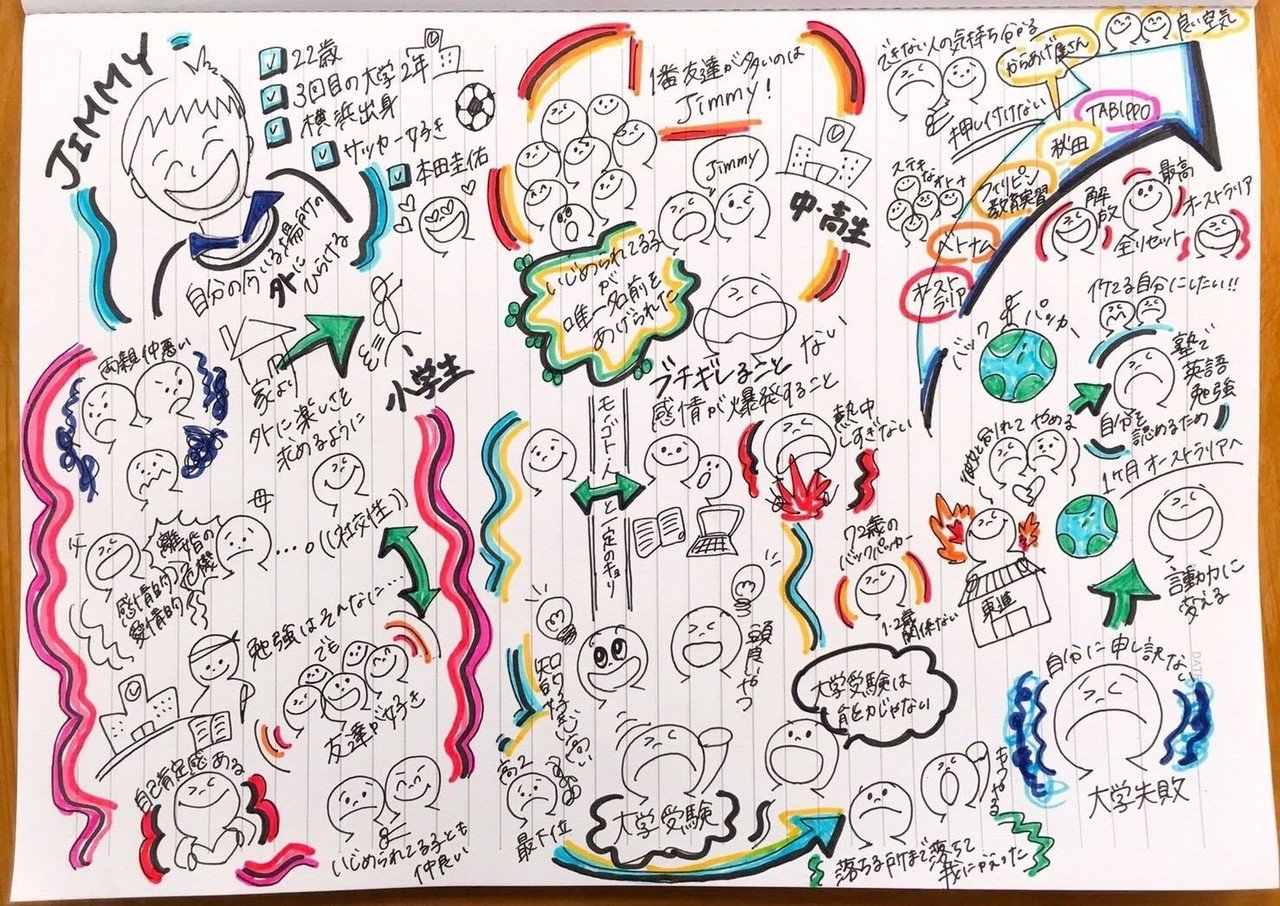 JIMMY
22歳
3回目の大学2年
横浜出身
サッカー好き
本田圭佑
自分の今いる場所の
外に
ひらける
小学生
両親仲悪い
家より
外に楽しさを
求めるように
父
母
離婚の
危機
感情的
愛情的
...。((社交性))
勉強はそんなに...
でも
友達が好き
自己肯定感める
いじめられてる子とも
仲良い
1番友達が多いのは
Jimmy!
Jimmy
中・高生
いじめられてる子
が
唯一名前を
あげられた
ブチギレること
ない
感情が爆発すること
熱中
しすぎない
一定のキョリ
72歳の
バックパッカー
1・2歳
関係ない
頭良いやつ
高2
最下位
大学受験
大学受験は
能力じゃない
落ちる所まで落ちて
我にかえった
大学失敗
自分に申し訳ない
言動力に
変える
1ヶ月オーストラリアへ
東進
彼女と別れて やめる
自分を
認めるため
塾で
英語
勉強
イケてる自分にしたい!!
バックパッカー
オースト
ラリア
ベトナム
フィリピン
教育実習
秋田
TABIPPO
からあげ屋さん
良い空気
できない人の気持ち分かる
押し付けない
ステキなオトナ
解放
最高
全リセット
オーストラリア
DATE